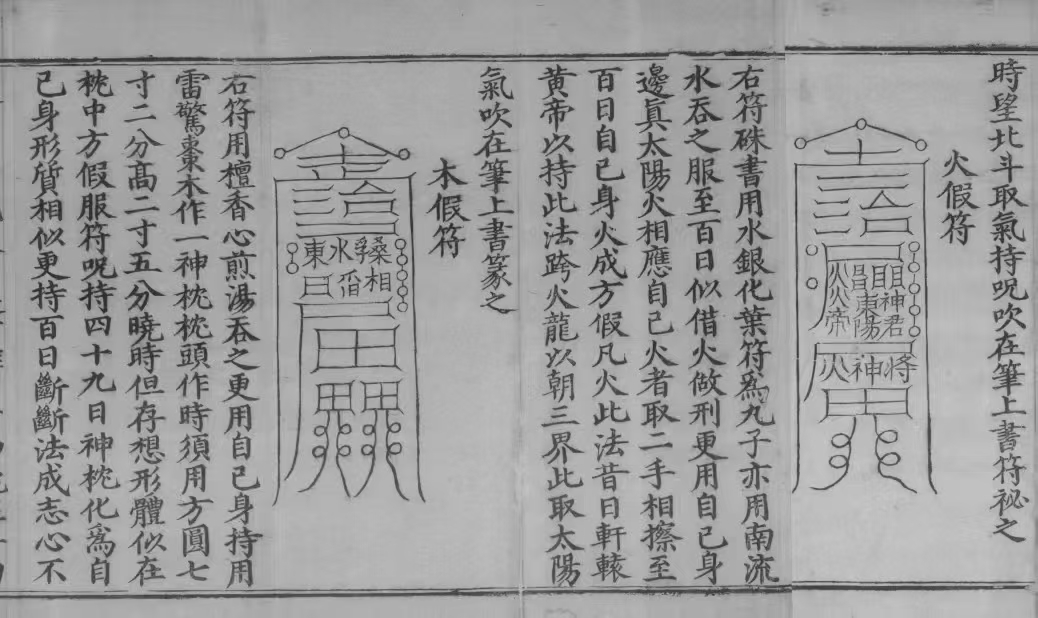 時望北斗取氣持呪吹在筆上書符祕之
火假符
明神君
昌東陽
火火帝
將神火
右符硃書用水銀化葉符為丸子亦用南流
水吞之服至百日似借火做刑更用自己身
邊真太陽火相應自己火者取二手相擦至
百日自已身火成方假凡火此法昔日軒轅
黃帝以持此法跨火龍以朝三界此取太陽
氣吹在筆上書篆之
木假符
桑
相
水
東
日
右符用檀香心煎湯吞之更用自己身持用
雷驚棗木作一神枕枕頭作時須用方圓七
寸二分高二寸五分曉時但存想形體似在
枕中方假服符呪持四十九日神枕化為自
已身形質相似更持百日斷斷法成志心不